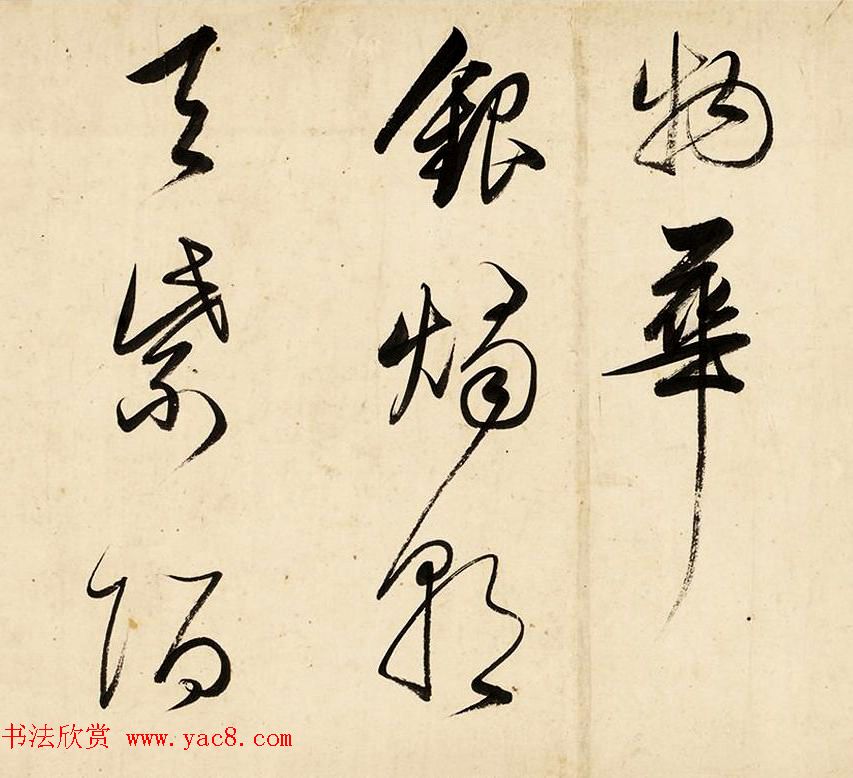 物華
銀燭朝
天紫陌
书法欣赏 www.yac8.com